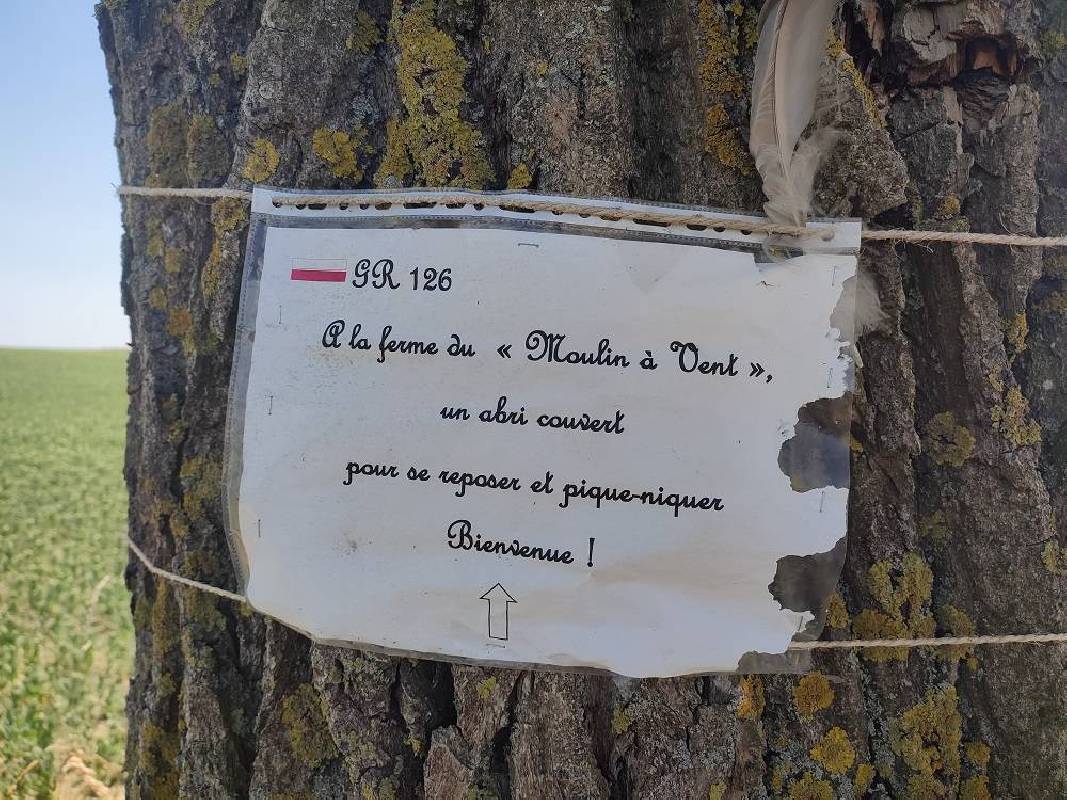 GR 126
A la ferme du « Moulin à Vent »,
un abri couvert
pour se reposer et pique-niquer
Bienvenue !